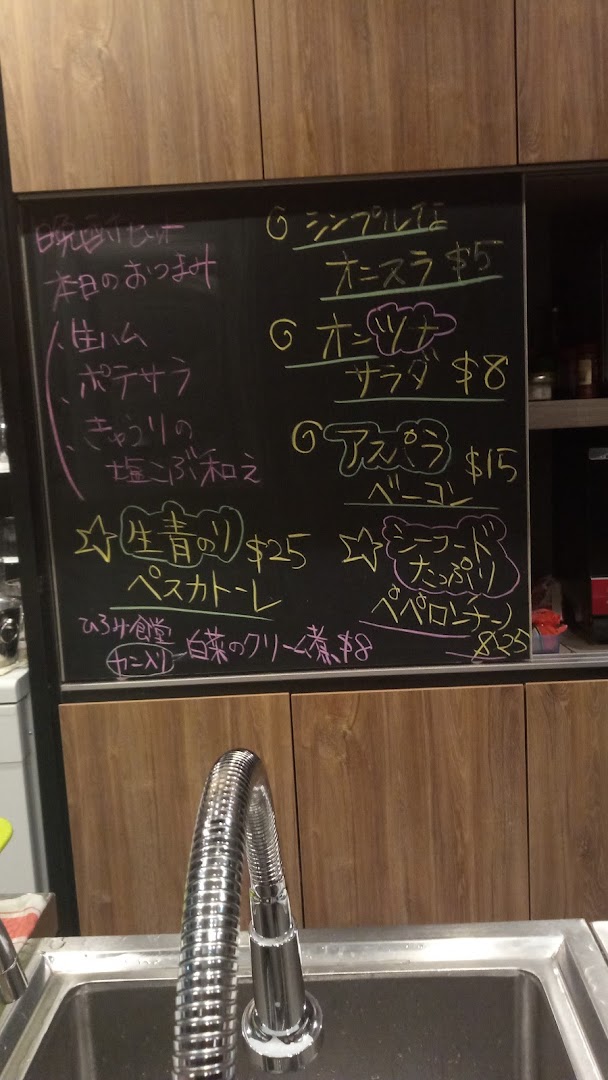 晩酌セット
本日のおつまみ
、生ハム
、ポテサラ
、きゅうりの
塩こぶ和え
シンプルな
オニスラ $5
オンツナ
サラダ $8
アスパラ
ベーコン $15
☆生青のり
ペスカトーレ $25
☆シーフード
たっぷり
ペペロンチーノ
$25
ひろみ食堂
カニ入り 白菜のクリーム煮 $8